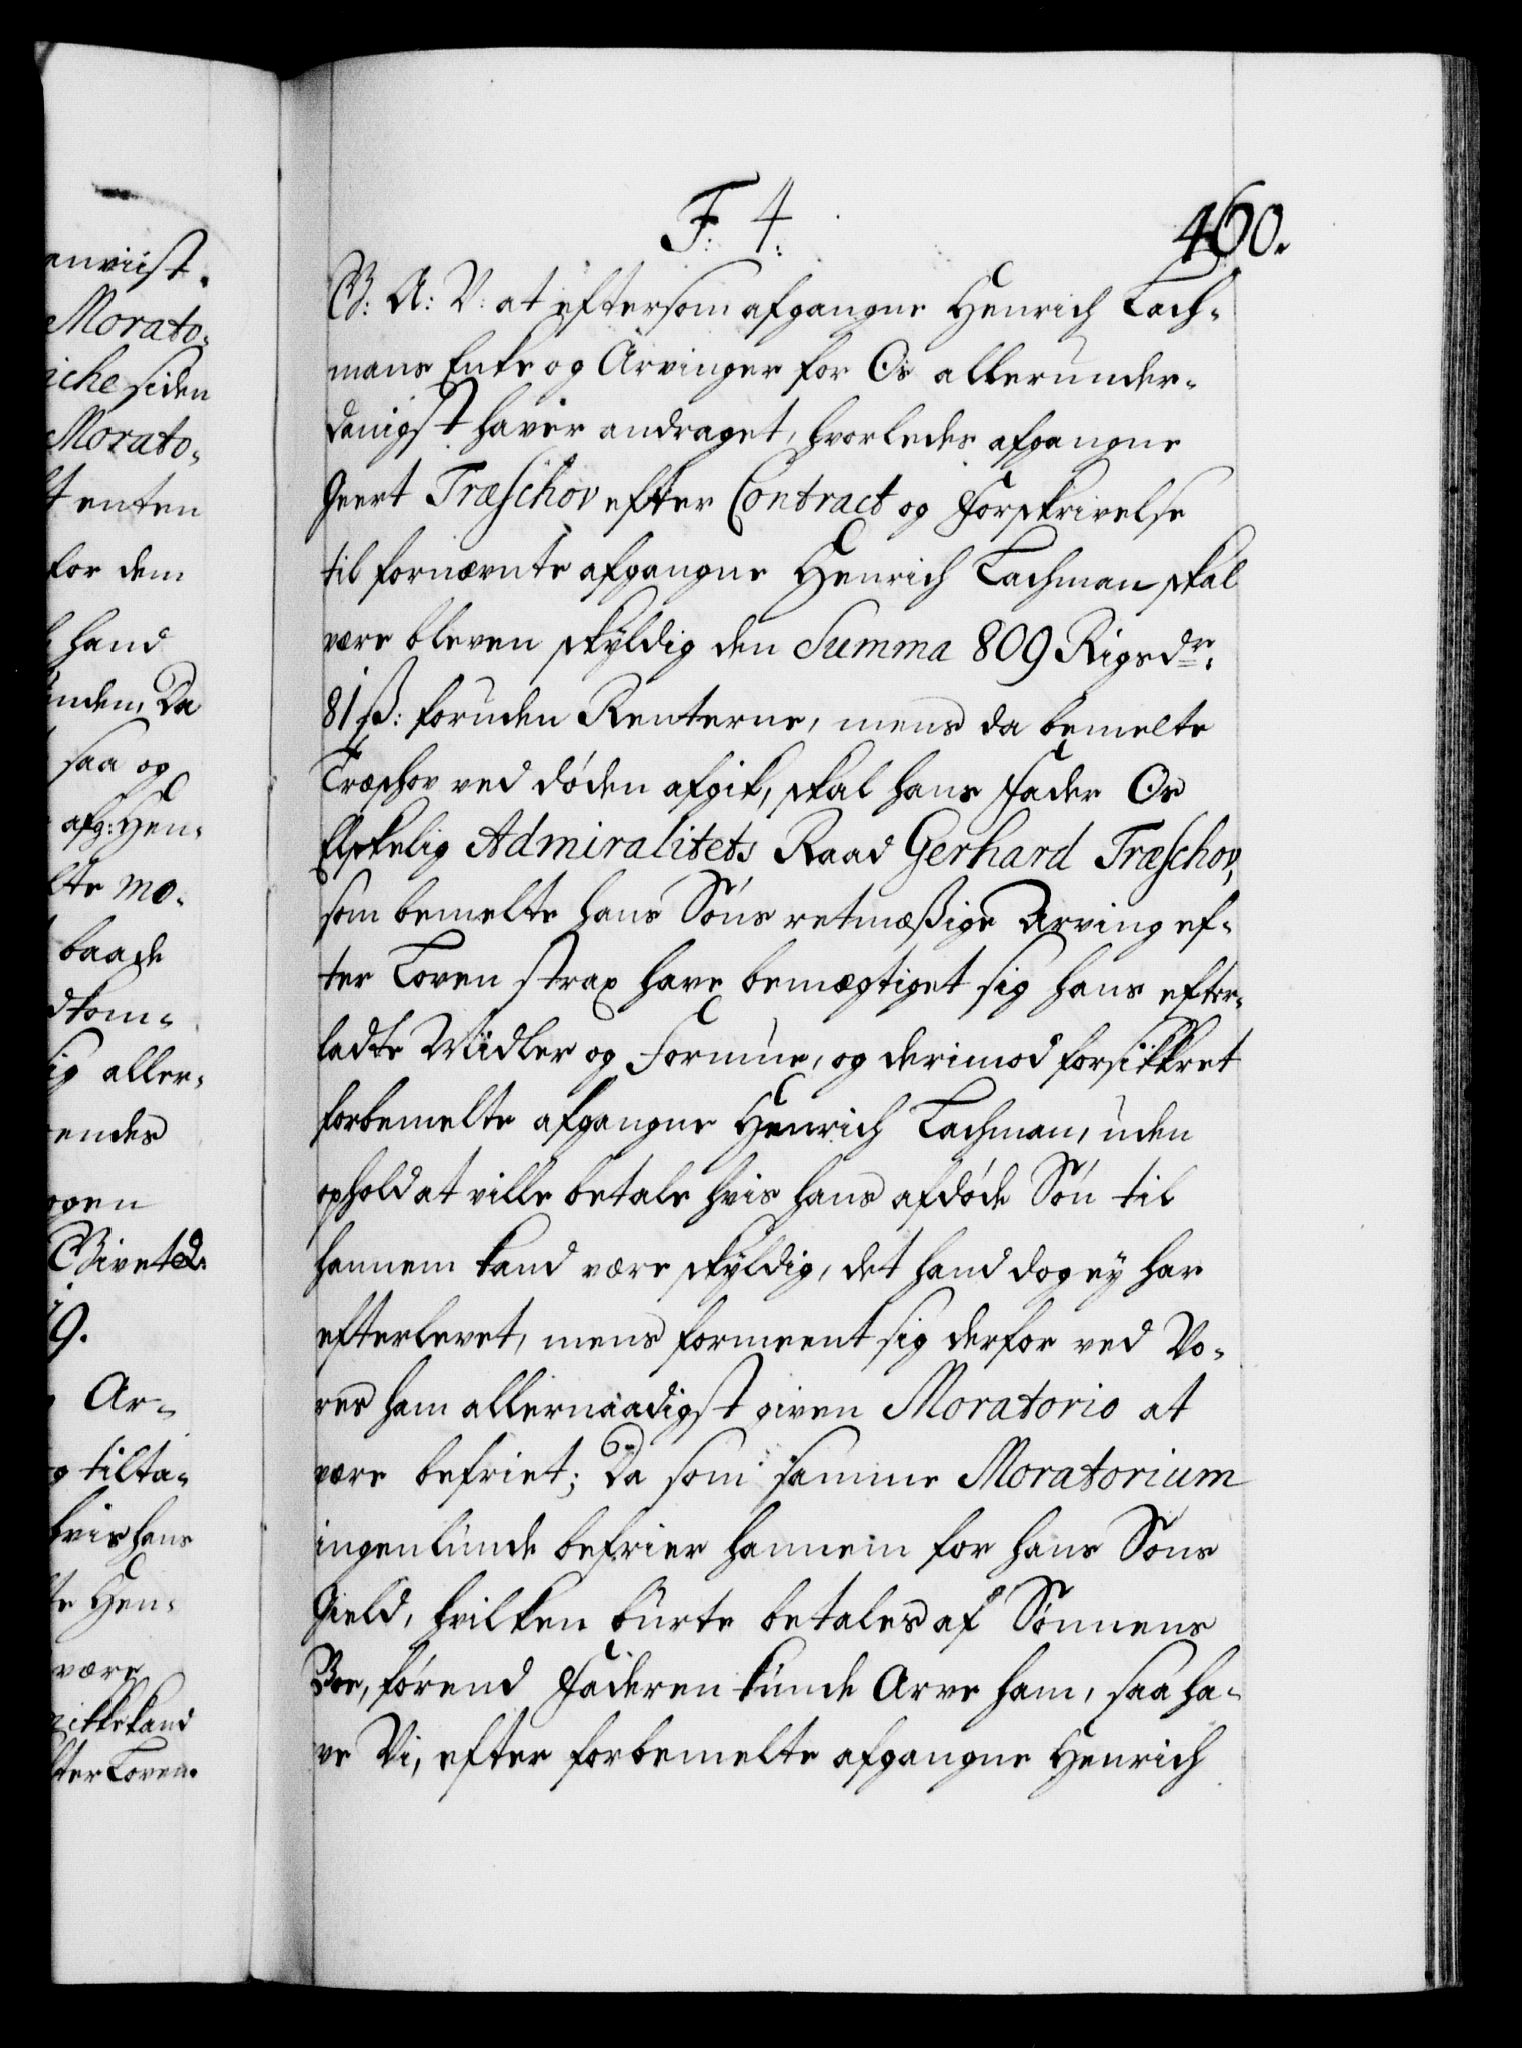 anviist.
Morato-
iche siden
Morato-
t enten
for dem
hand
inden, Da
saa og
afg: Hen-
lte mo-
baade
dkom-
sig aller-
endes
ogen
Givet d:
19.
Ar-
g tilta-
hvis hans
te Hen-
være
ikke kand
fter Loven.
F: 4.
460.
G: A: V: at eftersom afgangne Henrich Lach-
mans Enke og Arvinger for Os allerunder-
danigst haver andraget, hvorledes afgangne
Geert Træschov efter Contract og Forskrivelse
til fornævnte afgangne Henrich Lachman skal
være bleven skyldig den Summa 809 Rigsdr.
81 ß: foruden Renterne, mens da bemelte
Træschov ved døden afgik, skal hans Fader Os
Elskelig Admiralitets Raad Gerhard Træschov,
som bemelte hans Søns retmæßige Arving ef-
ter Loven strax have bemægtiget sig hans efter-
ladte Midler og Formue, og derimod forsikkret
forbemelte afgangne Henrich Lachman, uden
ophold at ville betale hvis hans afdøde Søn til
hannem kand være skyldig, det hand dog ey har
efterlevet, mens formeent sig derfor ved Vo-
res ham allernaadigst given Moratorio at
være befriet; Da som samme Moratorium
ingenlunde befrier hannem for hans Søns
Gield, hvilken burte betales af Sønnens
Boe, førend Faderen kunde Arve ham, saa ha-
ve Vi, efter forbemelte afgangne Henrich